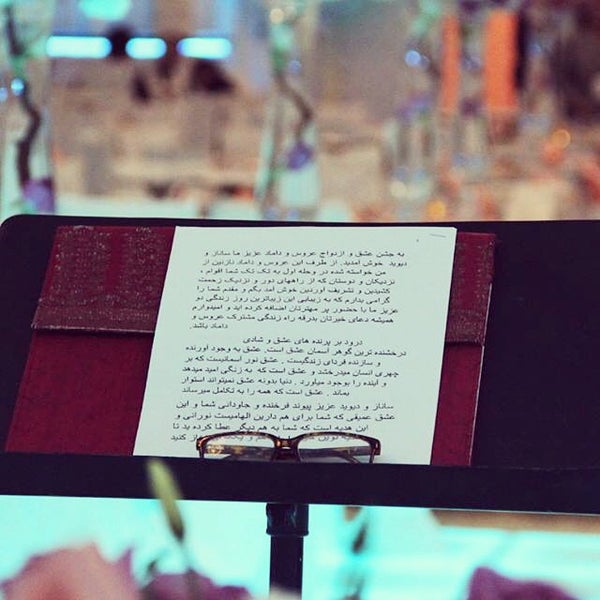 به جشن عشق و ازدواج عروس و داماد عزیز ما ساناز و
دیوید خوش آمدید. از طرف این عروس و داماد نازنین از
من خواسته شده در وحله اول به تک تک شما اقوام ،
نزدیکان و دوستان که از راههای دور و نزدیک زحمت
کشیدین و تشریف آوردین خوش آمد بگم و مقدم شما را
گرامی بدارم که به زیبایی این زیباترین روز زندگی دو
عزیز ما با حضور پر مهرتان اضافه کرده اید و امیدوارم
همیشه دعای خیرتان بدرقه راه زندگی مشترک عروس و
داماد باشد.
درود بر پرنده های عشق و شادی
درخشنده ترین گوهر آسمان عشق است. عشق بوجود آورنده
و سازنده فردای زندگیست . عشق نور آسمانیست که بر
چهری انسان میدرخشد و عشق است که به زنگی امید میدهد
و آینده را بوجود میاورد . دنیا بدونه عشق نمیتواند استوار
بماند . عشق است که همه را به تکامل میرساند
ساناز و دیوید عزیز پیوند فرخنده و جاودانی شما و این
عشق عمیقی که شما برای هم دارین الهامیست نورانی و
این هدیه است که شما به هم دیگر عطا کرده ید تا